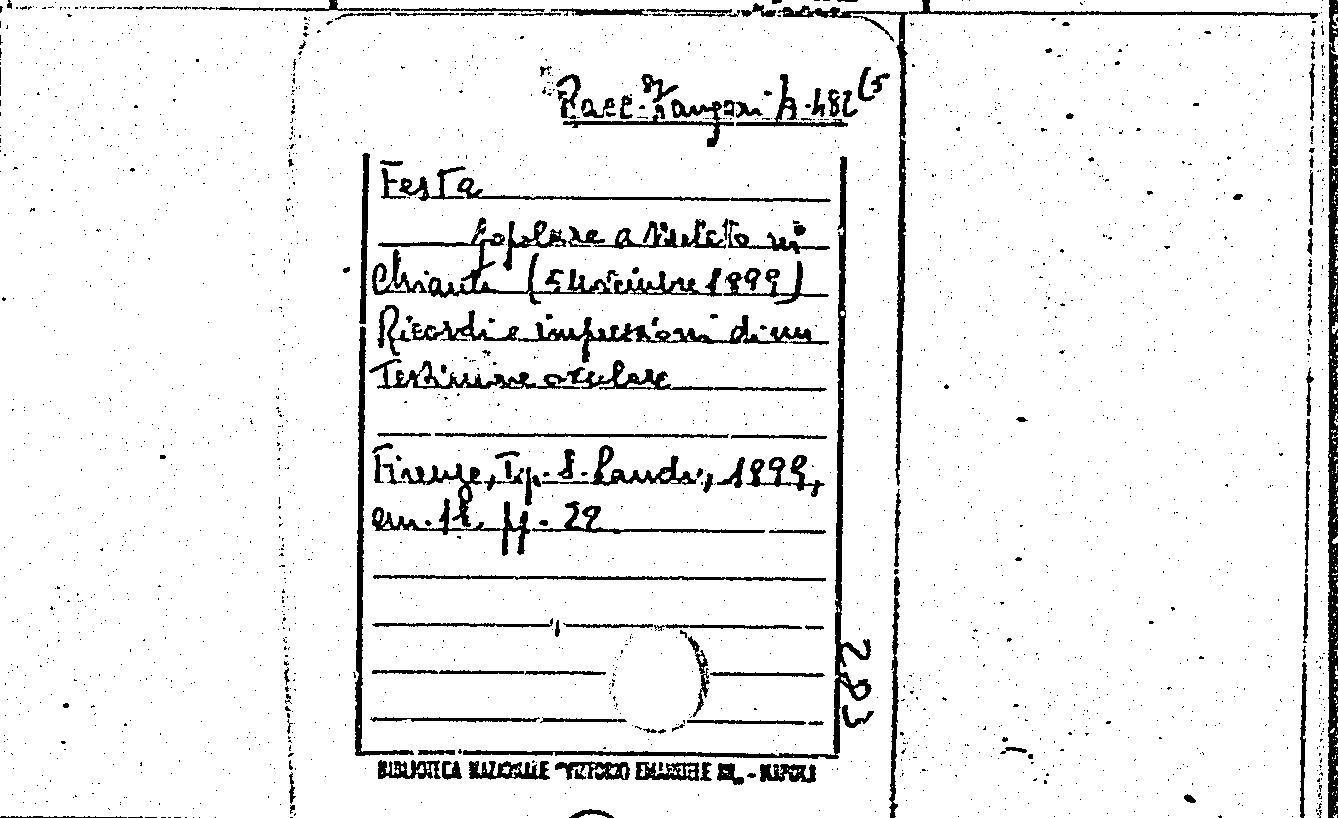 Racc. Zangari B. 482 (5
Festa
popolare a
Chianti (5 Novembre 1899)
Ricordi e impressioni di un
Testimone oculare
Firenze, Tip. S. Landi, 1899,
pp. 29
283
BIBLIOTECA NAZIONALE "VITTORIO EMANUELE III" - NAPOLI